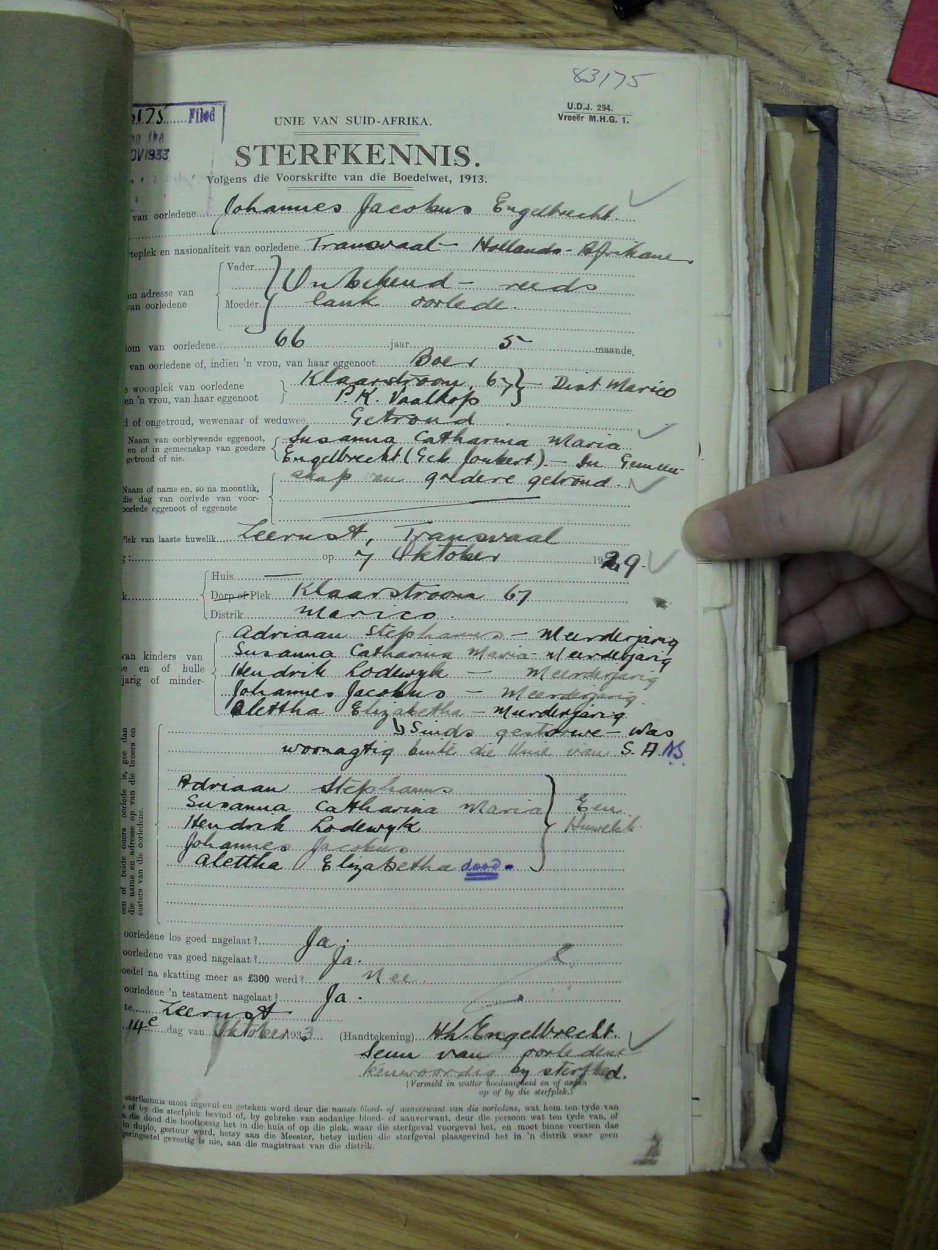 83175
6175 Filed
on the
OV 1933
U.D.J. 294.
Vroeër M.H.G. 1.
UNIE VAN SUID-AFRIKA.
STERFKENNIS.
Volgens die Voorskrifte van die Boedelwet, 1913.
van oorledene Johannes Jacobus Engelbrecht
teplek en nasionaliteit van oorledene Transvaal - Hollands-Afrikaner
en adresse van
van oorledene
Vader
Moeder
Onbekend - reeds
lank oorlede.
dom van oorledene 66 jaar 5 maande,
van oorledene of, indien 'n vrou, van haar eggenoot Boer
e woonplek van oorledene
en 'n vrou, van haar eggenoot
Klaarstroom, 67 - Dist Marico
P.K. Vaalkop
d of ongetroud, wewenaar of weduwee Getroud
Naam van oorblywende eggenoot,
en of in gemeenskap van goedere
getroud of nie.
Susanna Catharina Maria
Engelbrecht (Geb Joubert) - In Gemeen-
skap van goedere getroud.
Naam of name en, so na moontlik,
die dag van oorlyde van voor-
oorlede eggenoot of eggenote
Plek van laaste huwelik Zeerust, Transvaal
op 7 Oktober 1929
Huis
Dorp of Plek Klaarstroom 67
Distrik Marico
van kinders van
e en of hulle
jarig of minder-
Adriaan Stephanus - Meerderjarig
Susanna Catharina Maria - Meerderjarig
Hendrik Lodewyk - Meerderjarig
Johannes Jacobus - Meerderjarig
Alettha Elizabetha - Meerderjarig
Sinds gestorwe - was
woonagtig buite die Unie van S.A.
een of beide ouers oorlede is, gee dan
die name en adresse op van die broers en
susters van die oorledene.
Adriaan Stephanus
Susanna Catharina Maria
Hendrik Lodewyk
Johannes Jacobus
Alettha Elizabetha dood.
Een
Huwelik
oorledene los goed nagelaat? Ja.
oorledene vas goed nagelaat? Ja.
oedel na skatting meer as £300 werd? Nee
oorledene 'n testament nagelaat? Ja.
te Zeerust
14e dag van Oktober 1933 (Handtekening) Engelbrecht.
Seun van oorledene
teenwoordig by sterfbed.
(Vermeld in watter hoedanigheid en of aanwesig
op of by die sterfplek.)
sterfkennis moet ingevul en geteken word deur die naaste bloed- of aanverwant van die oorledene, wat hom ten tyde van
of by die sterfplek bevind of, by gebreke van sodanige bloed- of aanverwant, deur die persoon wat ten tyde van, of
a die dood die hooftoesig het in die huis of op die plek, waar die sterfgeval voorgeval het, en moet binne veertien dae
in duplo, gestuur word, hetsy aan die Meester, hetsy indien die sterfgeval plaasgevind het in 'n distrik waar geen
geringsetel gevestig is nie, aan die magistraat van die distrik.